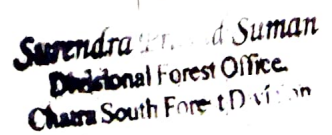 Surendra Suman
Divisional Forest Office.
Chatra South Forest Division